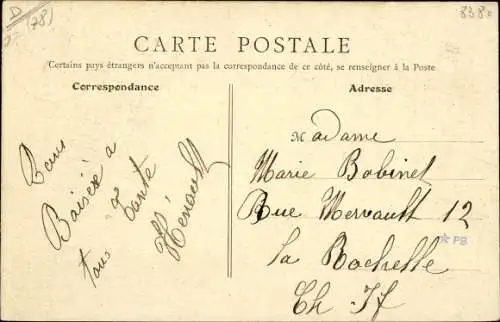 D (78)
838
CARTE POSTALE
Certains pays étrangers n'acceptant pas la correspondance de ce côté, se renseigner à la Poste
Correspondance
Adresse
Bons
Baisers a
tous
Hérault
Madame
Marie Bobinet
Rue Mervault 12
la Rochelle
Ch If
PB